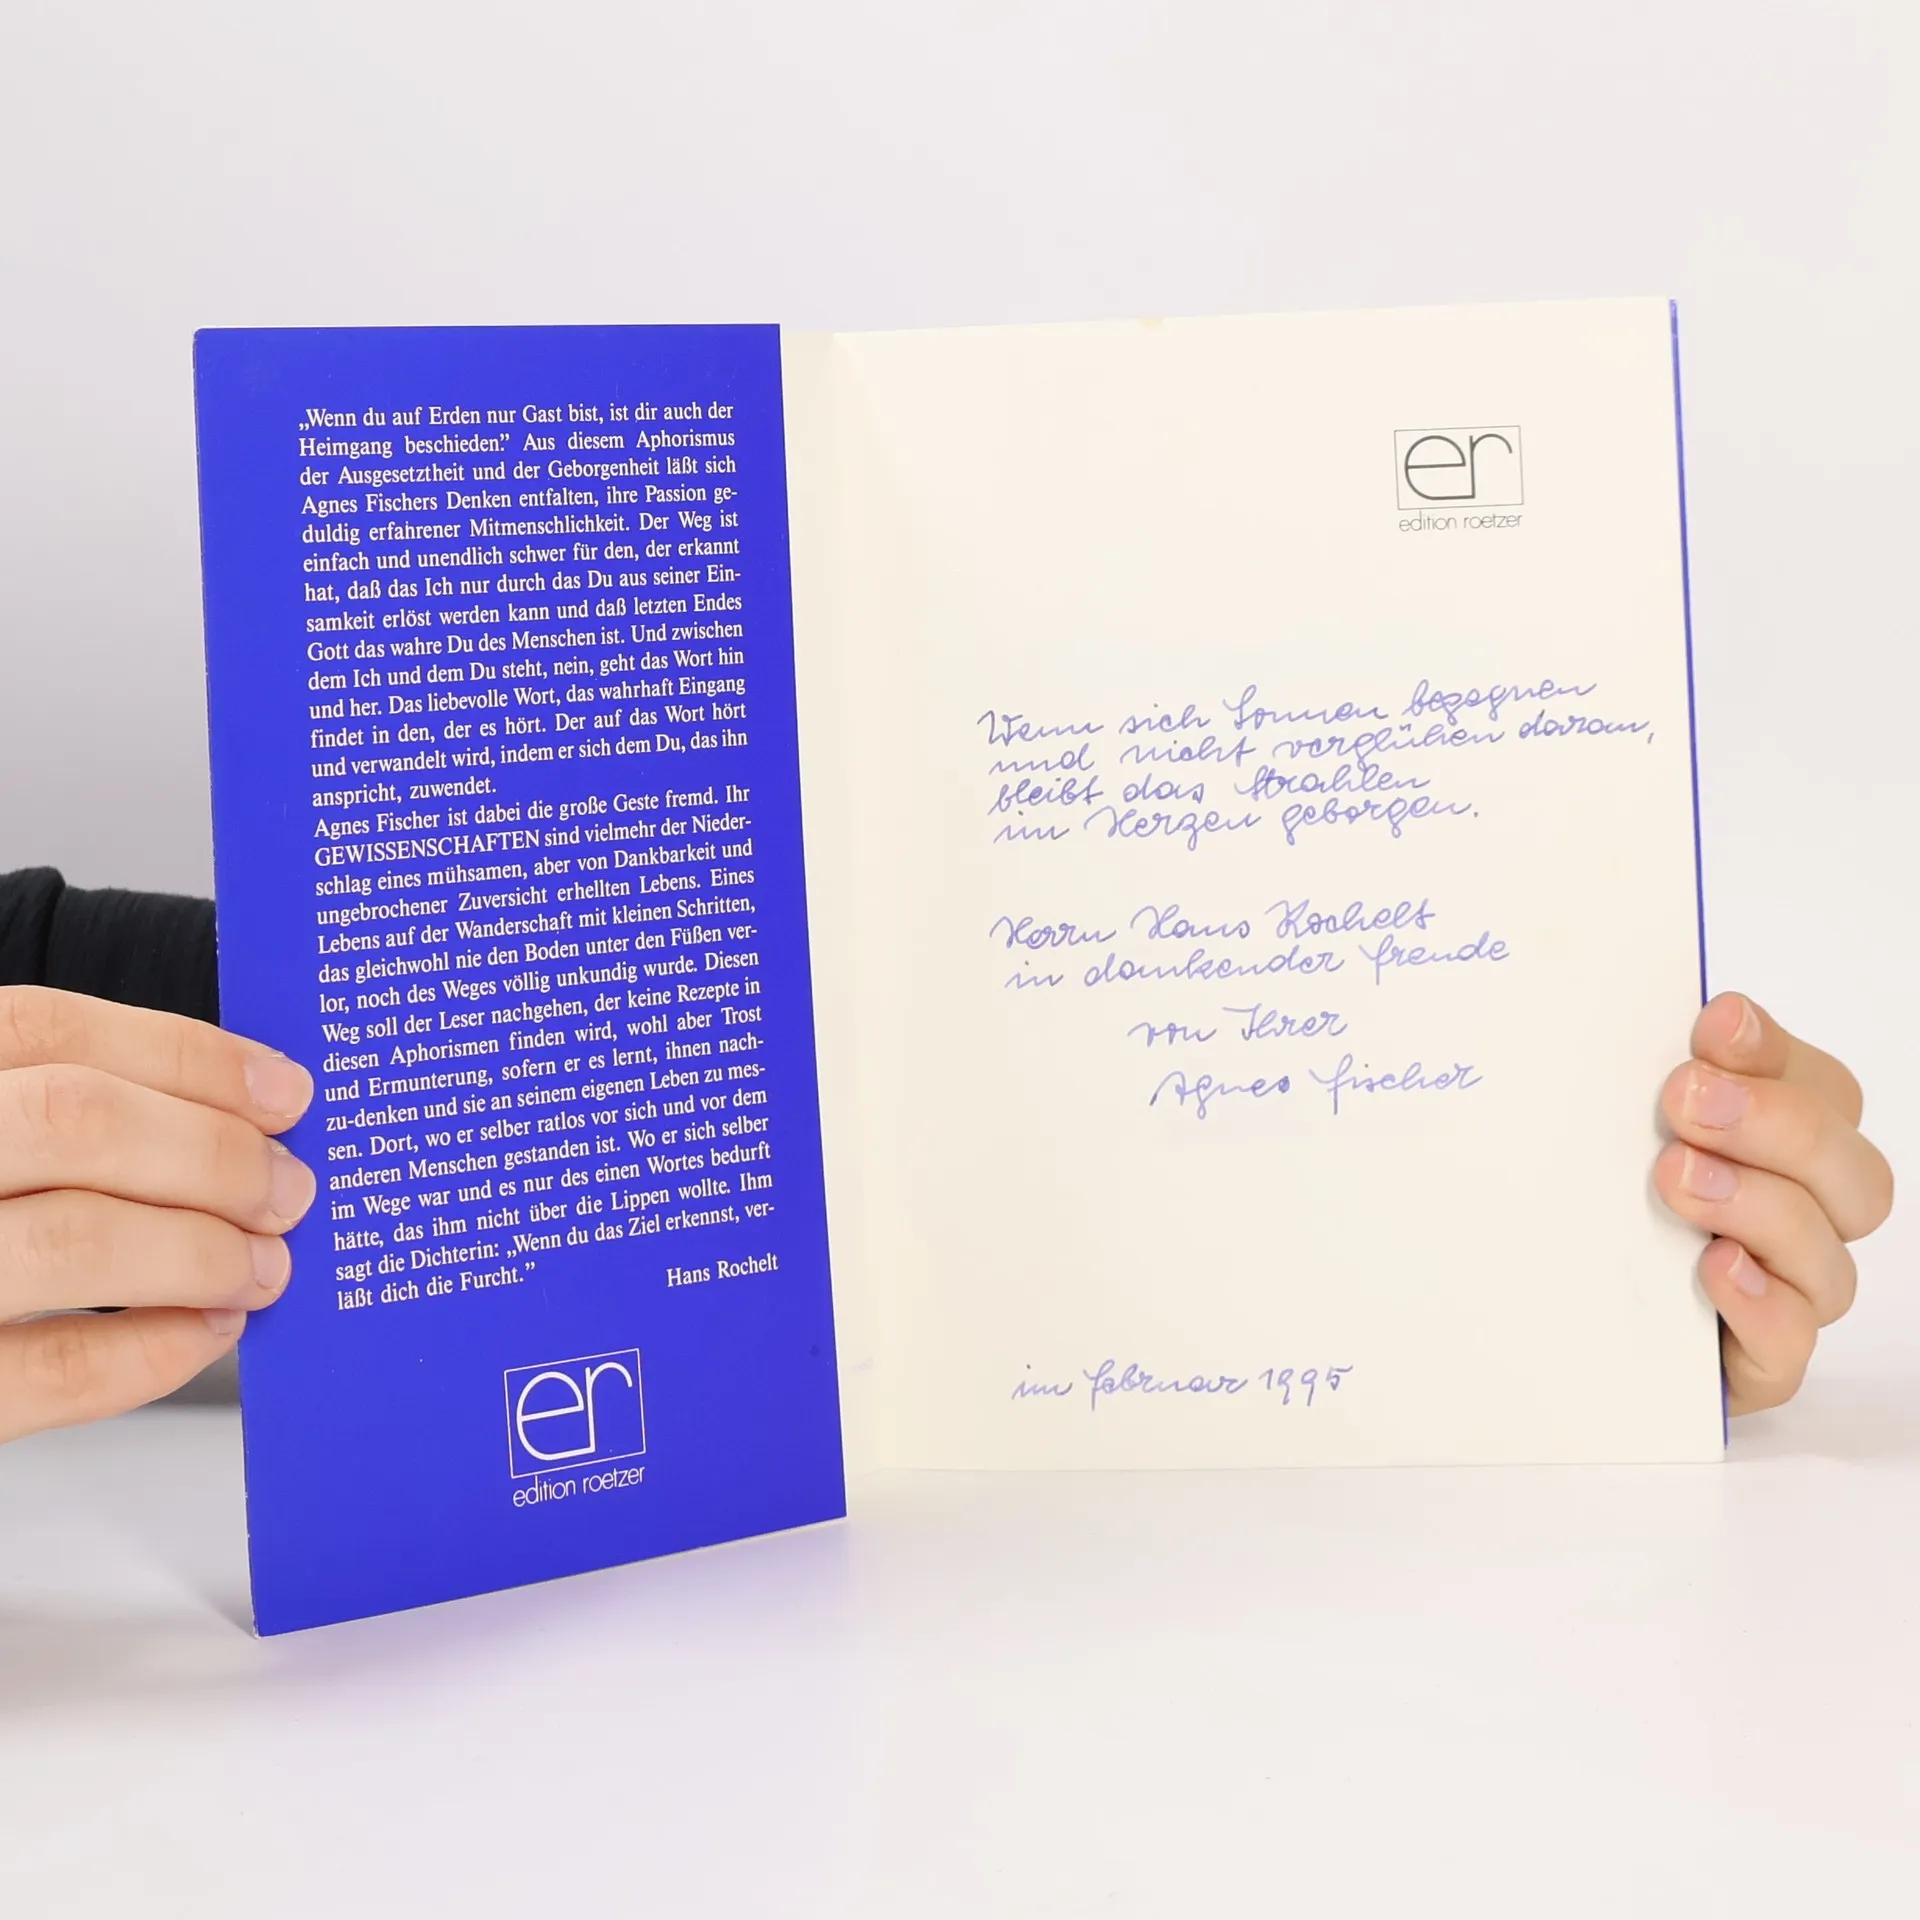 „Wenn du auf Erden nur Gast bist, ist dir auch der
Heimgang beschieden.” Aus diesem Aphorismus
der Ausgesetztheit und der Geborgenheit läßt sich
Agnes Fischers Denken entfalten, ihre Passion ge-
duldig erfahrener Mitmenschlichkeit. Der Weg ist
einfach und unendlich schwer für den, der erkannt
hat, daß das Ich nur durch das Du aus seiner Ein-
samkeit erlöst werden kann und daß letzten Endes
Gott das wahre Du des Menschen ist. Und zwischen
dem Ich und dem Du steht, nein, geht das Wort hin
und her. Das liebevolle Wort, das wahrhaft Eingang
findet in den, der es hört. Der auf das Wort hört
und verwandelt wird, indem er sich dem Du, das ihn
anspricht, zuwendet.
Agnes Fischer ist dabei die große Geste fremd. Ihr
GEWISSENSCHAFTEN sind vielmehr der Nieder-
schlag eines mühsamen, aber von Dankbarkeit und
ungebrochener Zuversicht erhellten Lebens. Eines
Lebens auf der Wanderschaft mit kleinen Schritten,
das gleichwohl nie den Boden unter den Füßen ver-
lor, noch des Weges völlig unkundig wurde. Diesen
Weg soll der Leser nachgehen, der keine Rezepte in
diesen Aphorismen finden wird, wohl aber Trost
und Ermunterung, sofern er es lernt, ihnen nach-
zu-denken und sie an seinem eigenen Leben zu mes-
sen. Dort, wo er selber ratlos vor sich und vor dem
anderen Menschen gestanden ist. Wo er sich selber
im Wege war und es nur des einen Wortes bedurft
hätte, das ihm nicht über die Lippen wollte. Ihm
sagt die Dichterin: „Wenn du das Ziel erkennst, ver-
läßt dich die Furcht.”
Hans Rochelt
er
edition roetzer
er
edition roetzer
Wenn sich Sonnen begegnen
und nicht verglühen daran,
bleibt das Strahlen
im Herzen geborgen.
Herrn Hans Rochelt
in dankender Freude
von Ihrer
Agnes Fischer
im Februar 1995